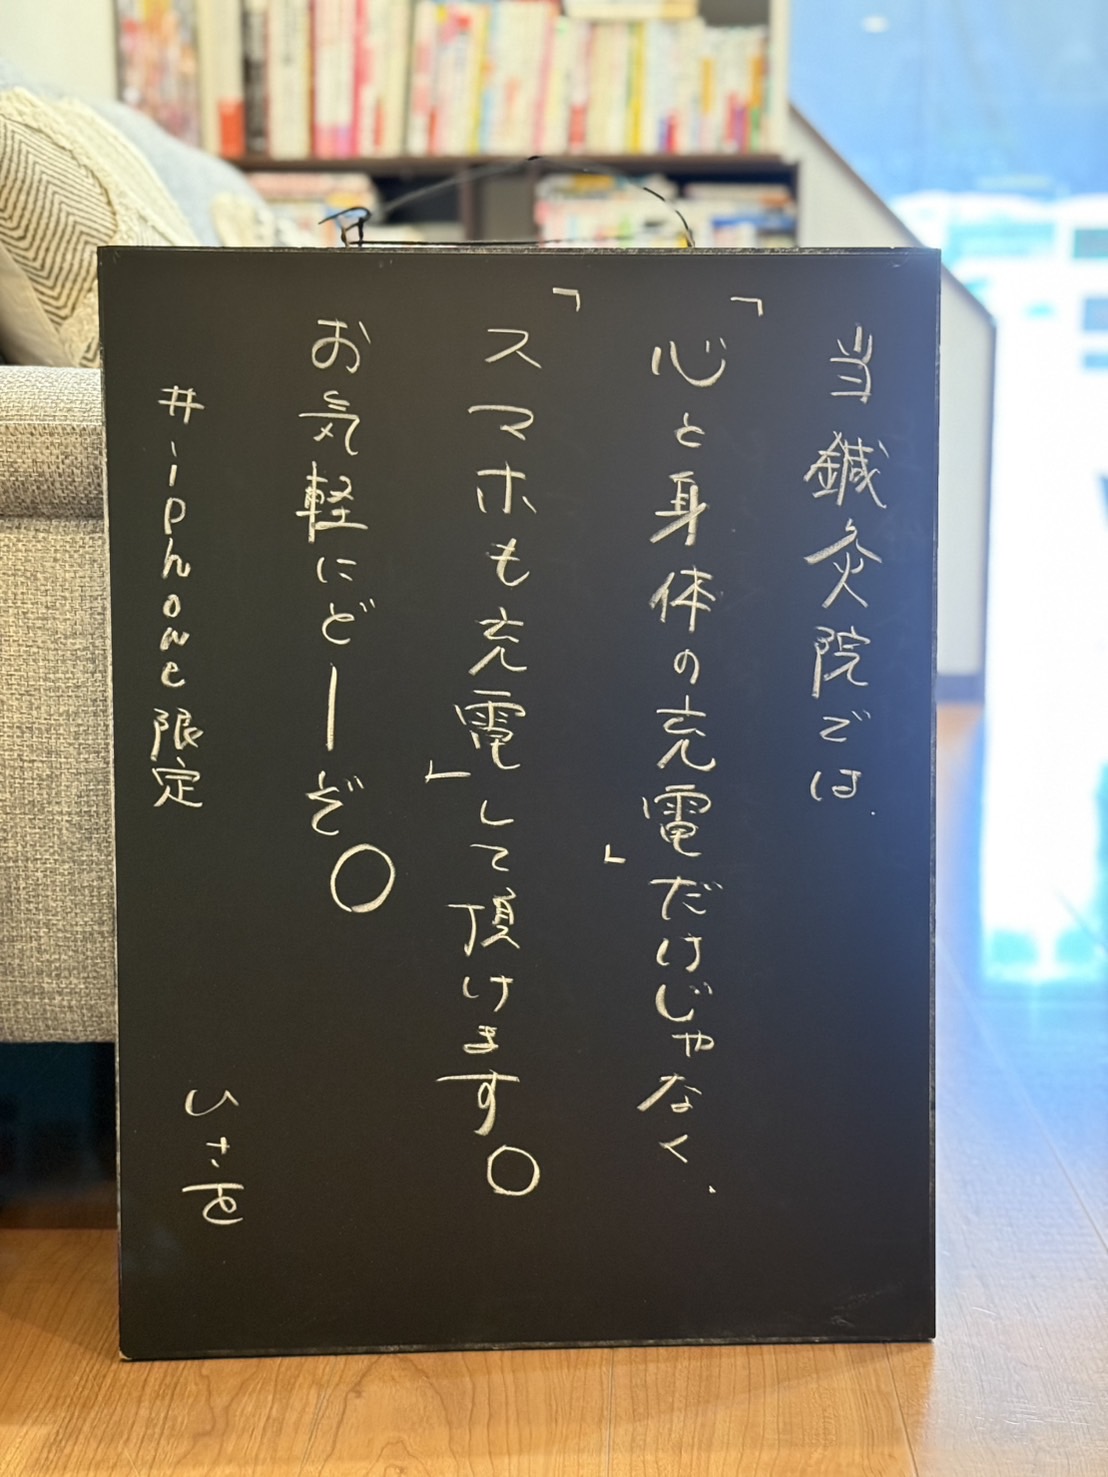 当鍼灸院では、
「心と身体の充電」だけじゃなく、
「スマホも充電」して頂けます。
お気軽にどーぞ。
#iphone限定
ひさを